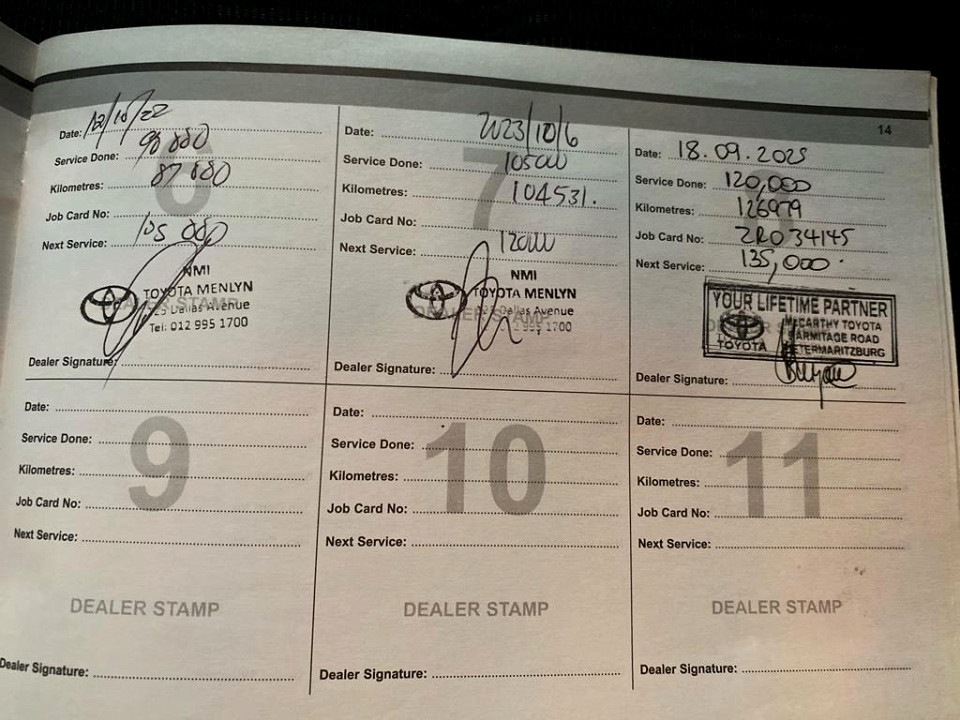 14
6
Date: 12/10/22
Service Done: 90 000
Kilometres: 87 880
Job Card No:
Next Service: 105 000
NMI
TOYOTA MENLYN
Dallas Avenue
Tel: 012 995 1700
DEALER STAMP
Dealer Signature:
7
Date: 2023/10/6
Service Done: 105000
Kilometres: 104531.
Job Card No:
Next Service: 120000
NMI
TOYOTA MENLYN
Dallas Avenue
995 1700
DEALER STAMP
Dealer Signature:
Date: 18.09.2025
Service Done: 120,000
Kilometres: 126979
Job Card No: ZR034145
Next Service: 135,000
YOUR LIFETIME PARTNER
McCARTHY TOYOTA
ARMITAGE ROAD
TOYOTA PIETERMARITZBURG
Dealer Signature:
9
Date:
Service Done:
Kilometres:
Job Card No:
Next Service:
DEALER STAMP
Dealer Signature:
10
Date:
Service Done:
Kilometres:
Job Card No:
Next Service:
DEALER STAMP
Dealer Signature:
11
Date:
Service Done:
Kilometres:
Job Card No:
Next Service:
DEALER STAMP
Dealer Signature: